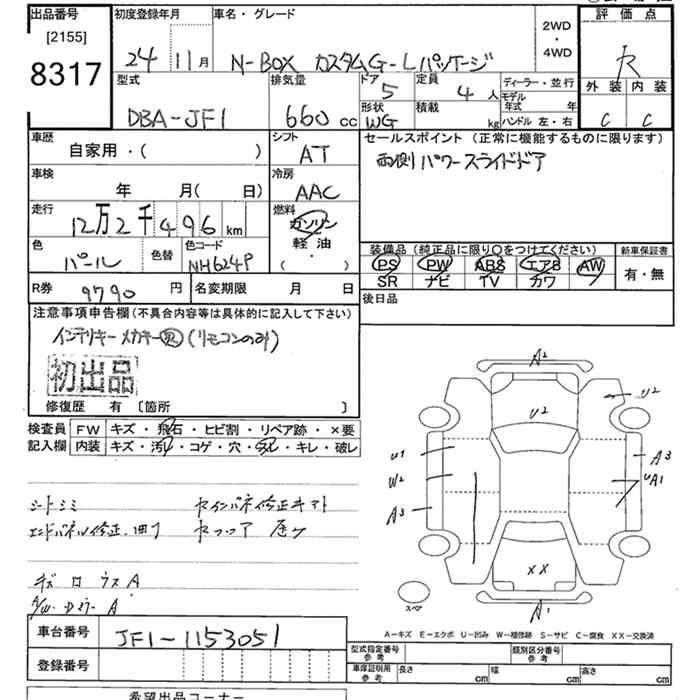 出品番号 初度登録年月 車名・グレード 評価点
[2155] 2WD
8317 24 11月 N-BOX カスタムG-Lパッケージ ・ R
4WD
型式 排気量 ドア 5 定員 4人 ディーラー・並行 外装 内装
モデル年式 年
DBA-JF1 660cc 形状 WG 積載 kg ハンドル 左・右 C C
車歴 シフト セールスポイント(正常に機能するものに限ります)
自家用・( ) AT 両側パワースライドドア
車検 冷房
年 月( 日) AAC
走行 燃料
12万2千496km ガソリン
色 色替 色コード 軽油 装備品(純正品に限り○をつけてください) 新車保証書
パール NH624P ( ) PS PW ABS エアB AW 有・無
SR ナビ TV カワ
R券 9790円 名変期限 月 日 後日品
注意事項申告欄(不具合内容等は具体的に記入して下さい)
インテリキー メカキー (リモコンのみ)
初出品
修復歴 有 〔箇所 〕
検査員 FW キズ・飛石・ヒビ割・リペア跡・×要
記入欄 内装 キズ・汚レ・コゲ・穴・スレ・キレ・破レ
A2
U2 U2
U1
W2
A3
A3
UA1
XX
A1
スペア
シートシミ
エンドパネル修正
A
A
A-キズ E-エクボ U-凹み W-補修跡 S-サビ C-腐食 XX-交換済
車台番号 JF1-1153051
登録番号
型式指定番号 参考 類別区分番号 参考
車庫証明用 参考 長さ cm 幅 cm 高さ cm
希望出品コーナー